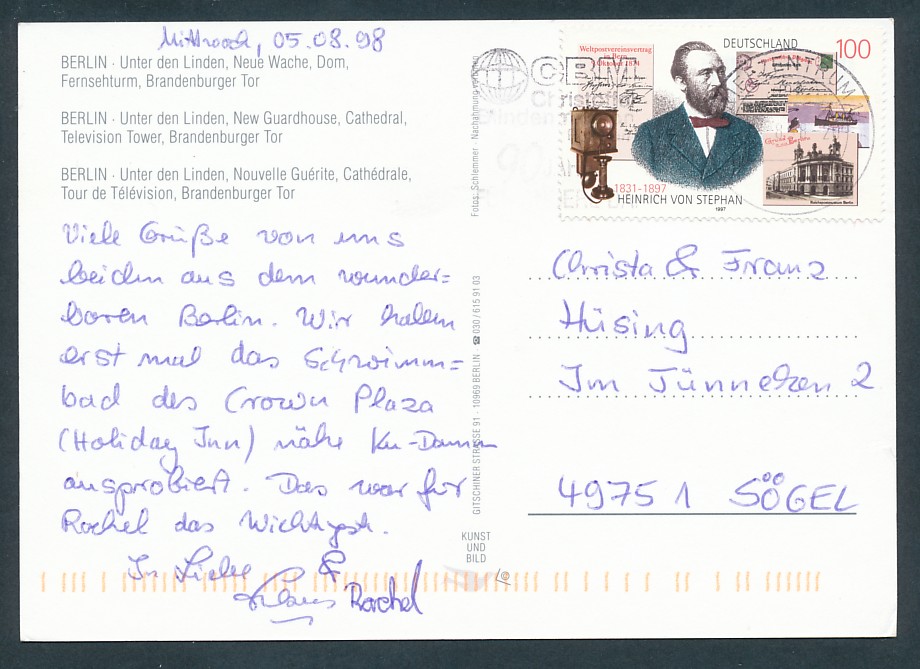 Mittwoch, 05.08.98
BERLIN · Unter den Linden, Neue Wache, Dom,
Fernsehturm, Brandenburger Tor
BERLIN · Unter den Linden, New Guardhouse, Cathedral,
Television Tower, Brandenburger Tor
BERLIN · Unter den Linden, Nouvelle Guérite, Cathédrale,
Tour de Télévision, Brandenburger Tor
Viele Grüße von uns
beiden aus dem wunder=
baren Berlin. Wir haben
erst mal das Schwimm=
bad des Crown Plaza
(Holiday Inn) nähe Ku-Damm
ausprobiert. Das war für
Rachel das Wichtigst.
In Liebe &
Klaus Rachel
Fotos: Schlemmer · Nachahmung verboten
GITSCHINER STRASSE 91 · 10969 BERLIN ☎ 030 / 615 91 03
KUNST
UND
BILD
CBM
Weltpostvereinsvertrag
in Bern
9. Oktober 1874
DEUTSCHLAND
100
1831-1897
HEINRICH VON STEPHAN
1997
Reichspostmuseum Berlin
Christa & Franz
Hüsing
Im Tünneken 2
49751 SÖGEL